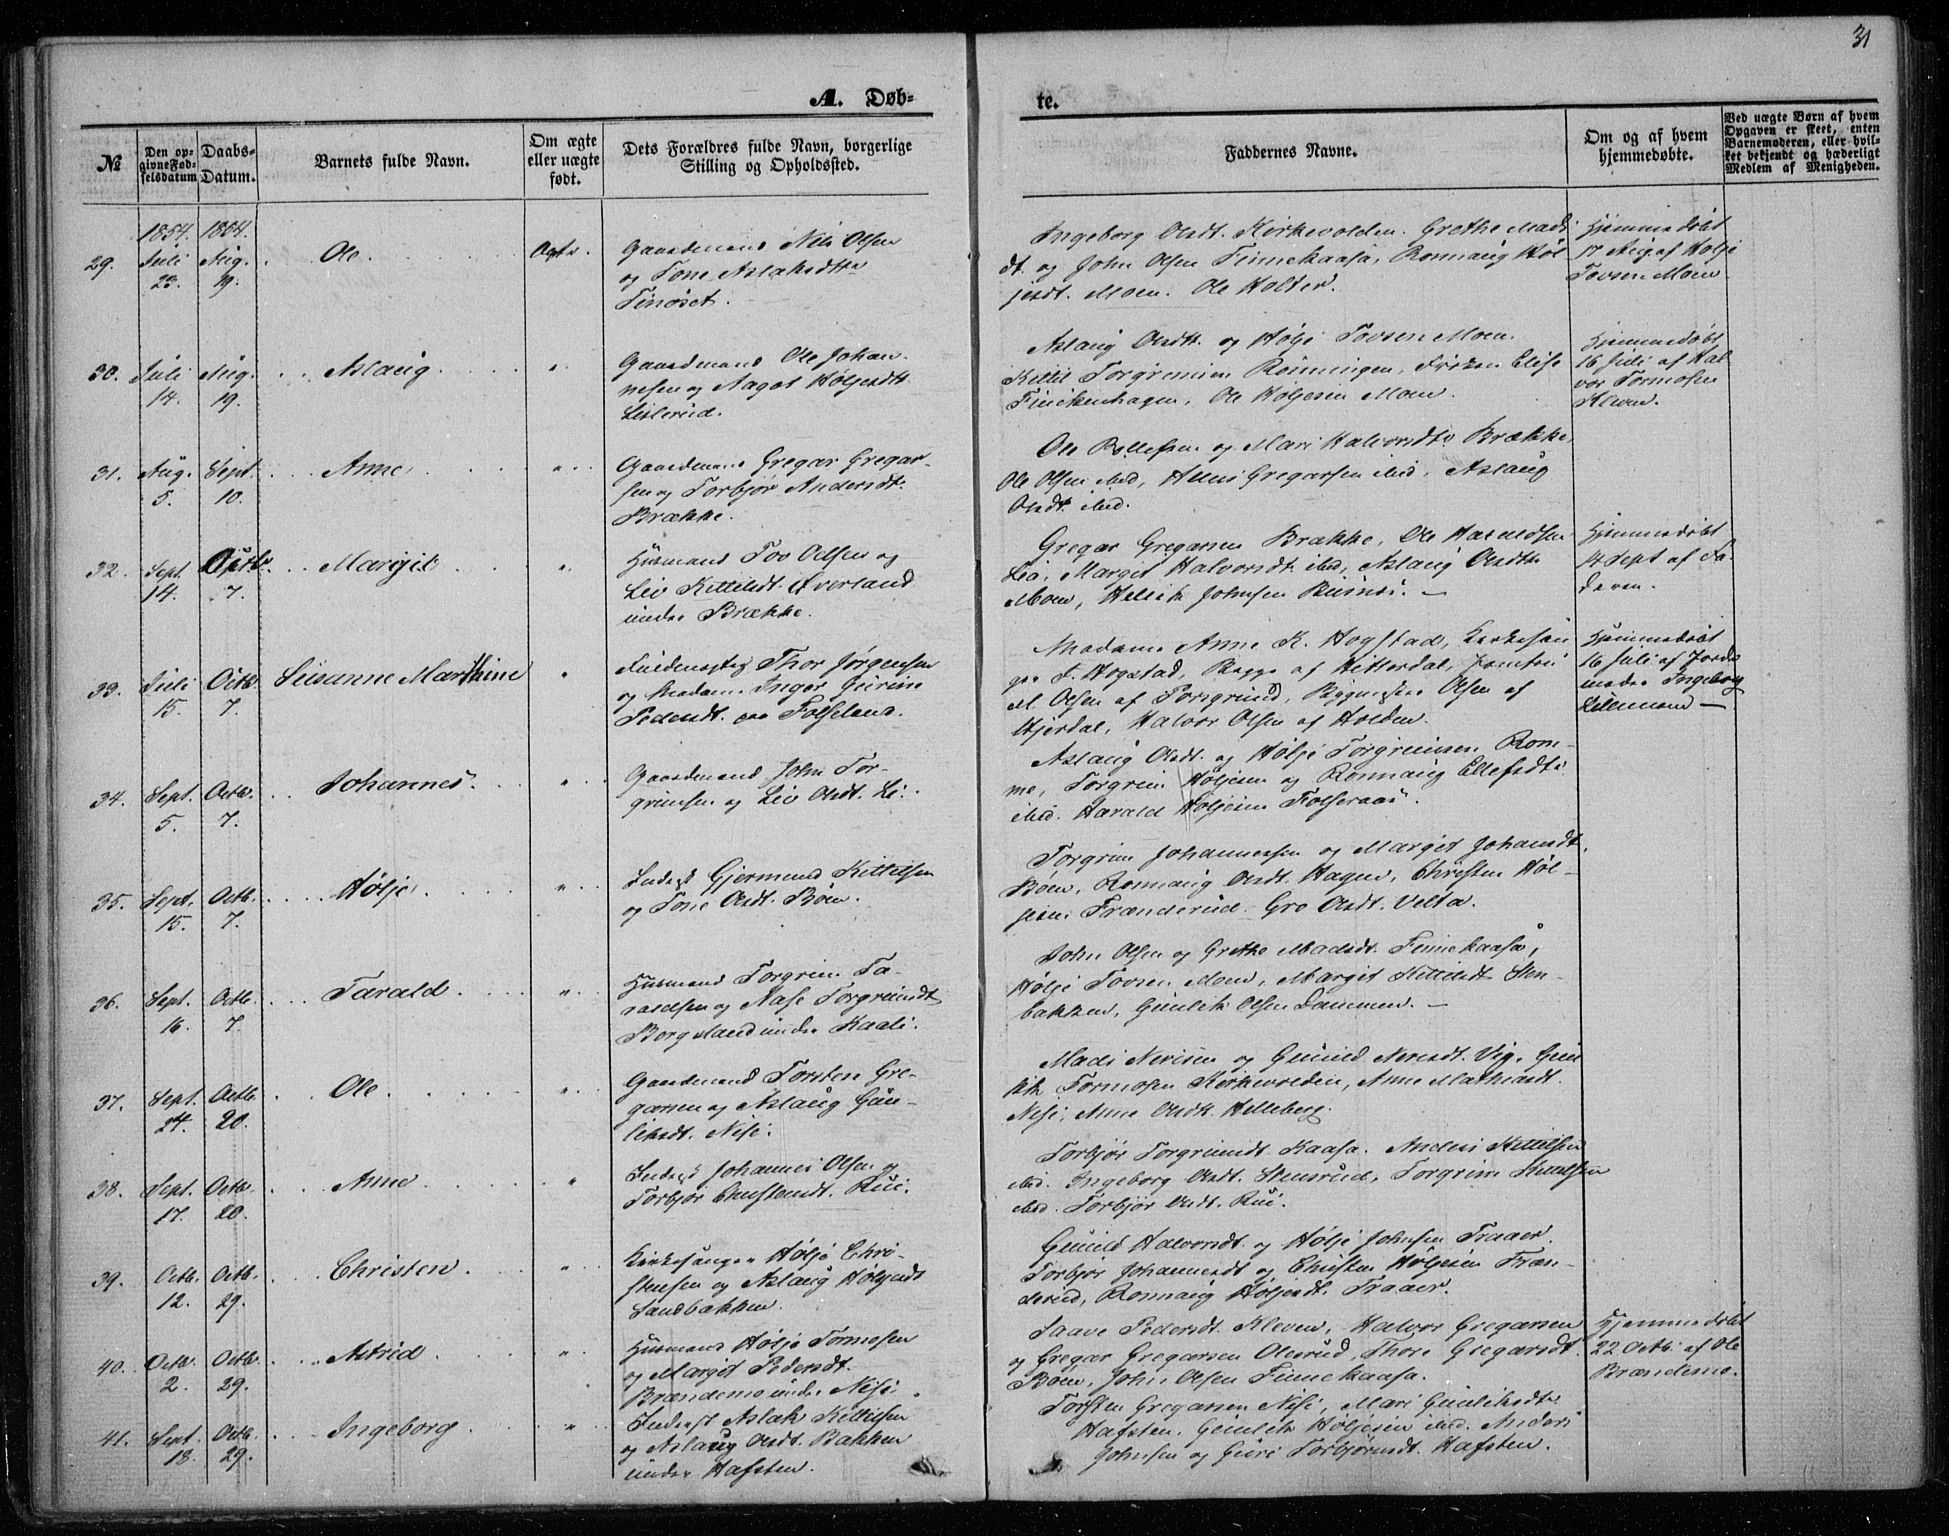 31
A. Døb-
te.
№
Den op-
givne Fød-
selsdatum
Daabs-
Datum.
Barnets fulde Navn.
Om ægte
eller uægte
født.
Dets Forældres fulde Navn, borgerlige
Stilling og Opholdssted.
Faddernes Navne.
Om og af hvem
hjemmedøbte.
Ved uægte Børn af hvem
Opgaven er skeet, enten
Barnemoderen, eller hvil-
ket bekjendt og hæderligt
Medlem af Menigheden.
1854. 1854.
29. Juli 23. Aug. 19. Ole Ægte.
Gaardmand Nils Olsen
og Tone Aslaksdtr
Tinöset.
Ingeborg Olsdt. Kirkevolden. Grethe Mads
dt. og John Olsen Finnekaasa, Rönnaug Höl
jesdt. Moen. Ole Holter.
Hjemmedöbt
17 Aug. af Hölje
Tovsen Moen
30. Juli 14. Aug. 19. Aslaug "
Gaardmand Ole Johan-
nesen og Aagot Höljesdt.
Lislerud.
Aslaug Olsdt. og Hölje Tovsen Moen.
Kittil Torgrimsen Rönningen, Fröken Elise
Finckenhagen, Ole Höljesen Moen.
Hjemmedöbt
16 Juli af Hal
vor Tormosen
Moen.
31. Aug. 5. Sept. 10. Anne "
Gaardmand Gregar Gregar-
sen og Torbjör Andersdt.
Brække.
Ole Rollefsen og Mari Halvorsdtr Brække,
Ole Olsen ibid, Gregarsen ibid, Aslaug
Olsdt. ibid.
32. Sept. 14. Octbr. 7. Margit "
Husmand Tov Olsen og
Liv Kittilsdt. Överland
under Brække.
Gregar Gregarsen Brække, Ole Haraldsen
Lia, Margit Halvorsdt. ibid, Aslaug Olsdtr
Moen, Johnsen
Hjemmedöbt
14 Sept af Fa-
deren.
33. Juli 15. Octb. 7. Susanne Marthine "
Thor Jörgensen
og Madam Inger Gurine
Pedersdt. paa Folseland.
Madame Anne K. Hogstad, Kirkesan
ger T. Hogstad, Bagge af Hitterdal, Jomfru
M. Olsen af Porsgrund, Olsen af
Hjerdal, Halvor Olsen af Holden.
Hjemmedöbt
16 Juli af Jorde
moder Ingeborg
34. Sept. 5. Octb. 7. Johannes. "
Gaardmand John Tor-
grimsen og Liv Olsdt. Li.
Aslaug Olsdt. og Hölje Torgrimsen Rom-
me, Torgrim Höljesen og Rönnaug Ellefsdtr
ibid. Harald Höljesen Folseraas.
35. Sept. 15. Octb. 7. Hölje "
Inderst Gjermund Kittilsen
og Tone Olsdt. Böen.
Torgrim Johannessen og Margit Johansdt.
Böen, Rönnaug Olsdt. Hagen, Christen Höl-
jesen Frænderud. Gro Olsdt. Velta.
36. Sept. 16. Octb. 7. Tarald "
Husmand Torgrim Ta-
raldsen og Aase Torgrimsdt
Borgeland under Kaali.
John Olsen og Grethe Madsdt. Finnekaasa,
Hölje Tovsen Moen, Margit Kittilsdt. Sten-
bakken, Gunlek Olsen Dammen.
37. Sept. 24. Octb. 20. Ole "
Gaardmand Torsten Gre-
garsen og Aslaug Gun-
leksdt. Nisi.
Mads Nirisen og Gunild Nerisdt. Vig, Gun
lek Tormosen Kirkevolden, Anne Mathiasdt.
Nisi, Anne Olsdt. Helleberg.
38. Sept. 17. Octb. 20. Anne "
Inderst Johannes Olsen og
Torbjör Christensdt. Rui.
Torbjör Torgrimsdt. Kaasa. Anders Kittilsen
ibid. Ingeborg Olsdt. Stensrud, Torgrim Kittilsen
ibid. Torbjör Olsdt. Rui.
39. Octb. 12. Octb. 29. Christen. "
Kirkesanger Hölje Chri-
stensen og Aslaug Höljesdt
Sandbækken.
Gunild Halvorsdt. og Hölje Johnsen Traaer.
Torbjör Johannesdt og Christen Höljesen Fræn-
derud, Rönnaug Höljesdt. Traaer.
40. Octb. 2. Octb. 29. Astrid "
Husmand Hölje Tormosen
og Margit Pedersdt.
Brændemo under Nisi.
Saave Pedersdt. Kleven, Halvor Gregarsen
og Gregar Gregarsen Olesrud, Thore Gregarsdt.
Böen, John Olsen Finnekaasa.
Hjemmedöbt
22 Octb. af Ole
Brændemo.
41. Sept. 18. Octb. 29. Ingeborg "
Inderst Aslak Kittilsen
og Aslaug Olsdt. Bakken
under Hafsten.
Torsten Gregarsen Nisi, Mari Gunleksdtr
Hafsten, Gunlek Höljesen ibid. Anders
Johnsen og Guri Torbjörnsdt. Hafsten.